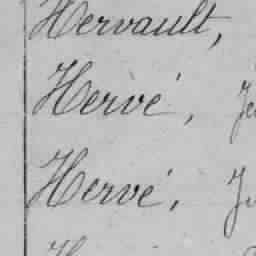 Hervault,
Hervé,
Hervé,